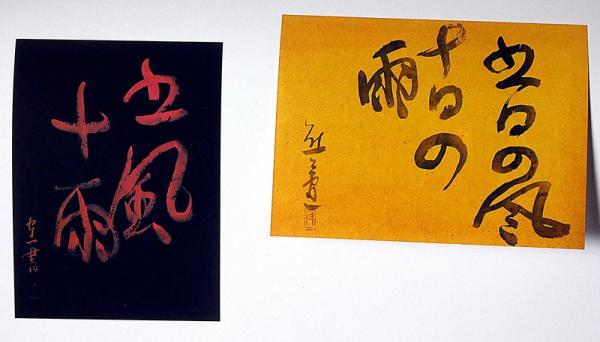 五風
十雨
五日の風
十日の
雨